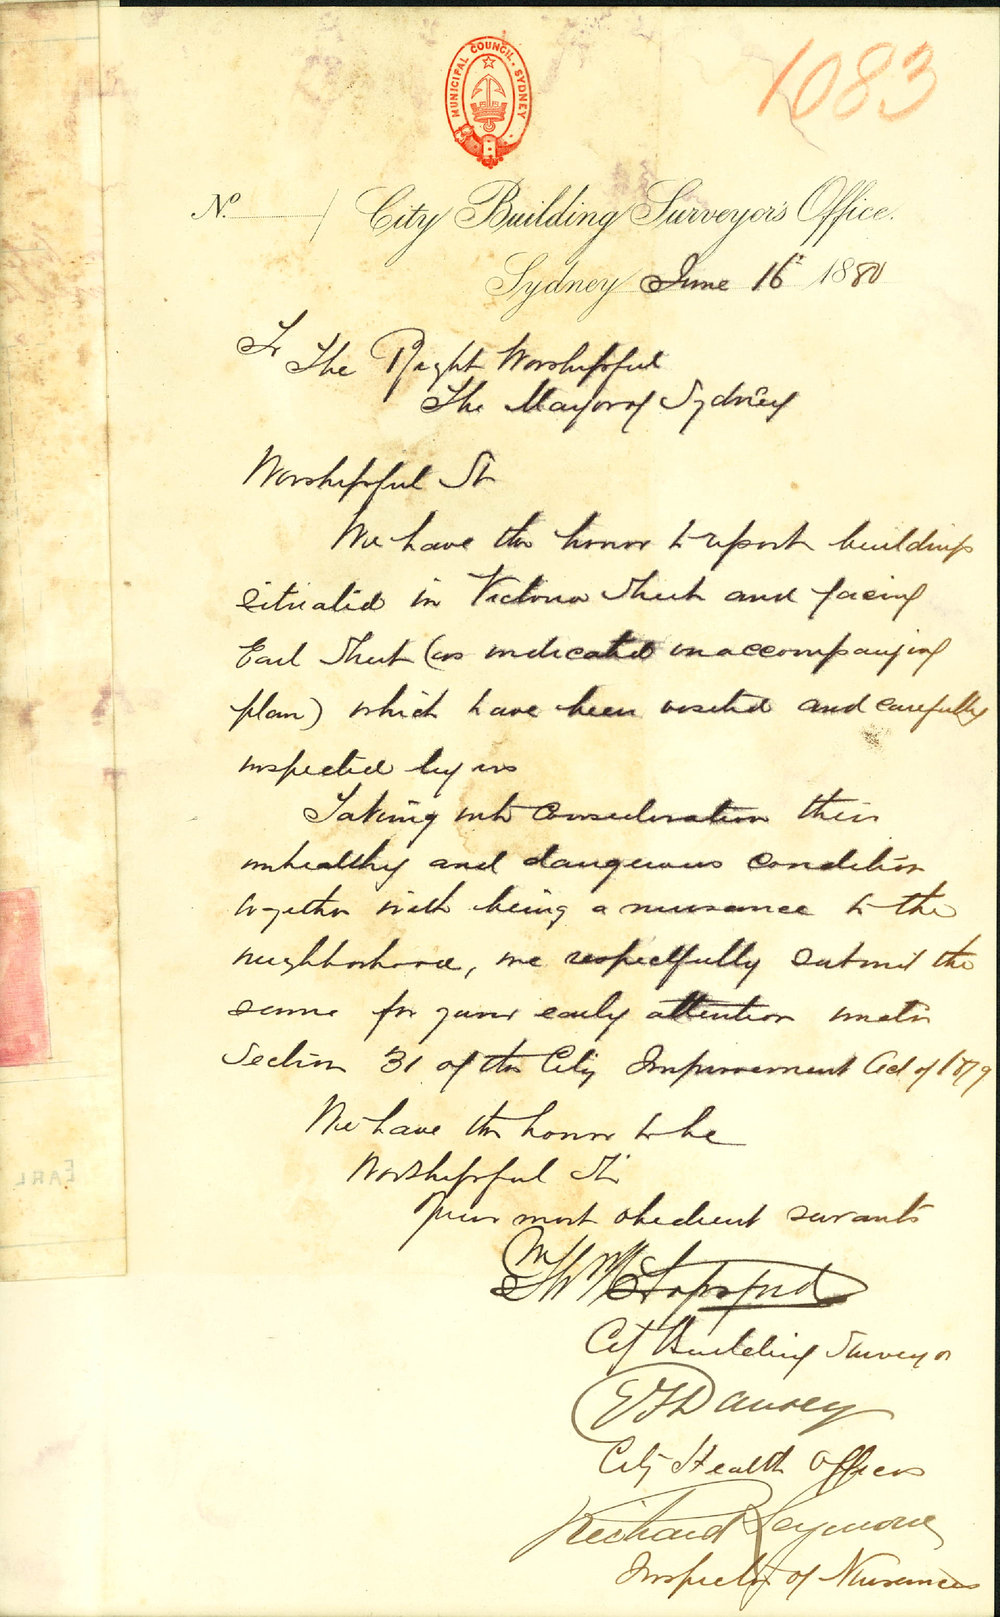 1083
MUNICIPAL COUNCIL. SYDNEY
No. / City Building Surveyor's Office.
Sydney June 16th 1880
To The Right Worshipful
The Mayor of Sydney
Worshipful Sir
We have the honor to report buildings
situated in Victoria Street and facing
Earl Street (as indicated in accompanying
plan) which have been visited and carefully
inspected by us
Taking into consideration their
unhealthy and dangerous condition
together with being a nuisance to the
neighborhood, we respectfully submit the
same for your early attention under
Section 31 of the City Improvement Act of 1879
We have the honor to be
Worshipful Sir
Your most obedient servants
City Building Surveyor
Dansey
City Health Officer
Richard Seymour
Inspector of Nuisances
EARL